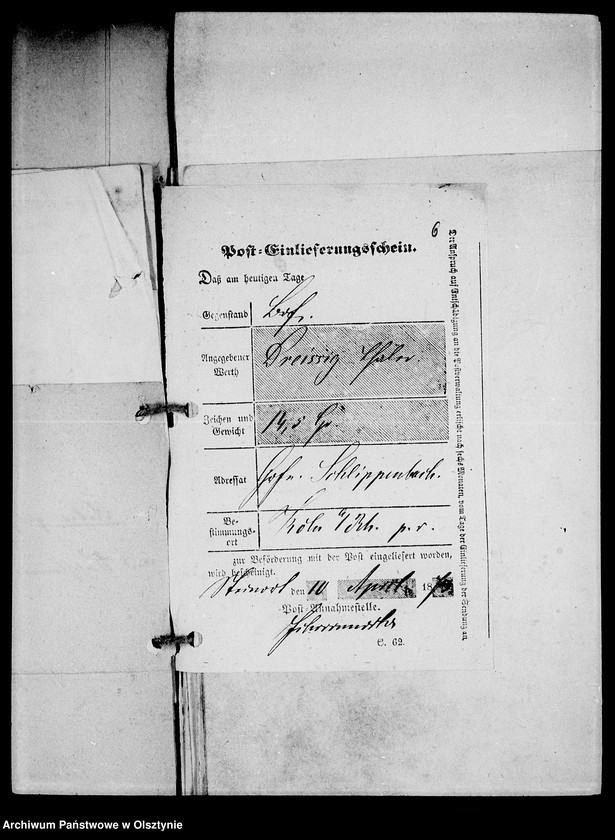 6
Post-Einlieferungsschein.
Daß am heutigen Tage
Gegenstand Brf.
Angegebener Werth Dreissig Thaler.
Zeichen und Gewicht
Adressat Schlippenbach.
Be-stimmungs-ort Köln a/Rh. p. r.
zur Beförderung mit der Post eingeliefert worden,
wird bescheinigt.
Steinort den 10 April 187
Post-Annahmestelle.
C. 62.
Der Anspruch auf Entschädigung an die Postverwaltung erlischt nach sechs Monaten, vom Tage der Einlieferung der Sendung an.
Archiwum Państwowe w Olsztynie